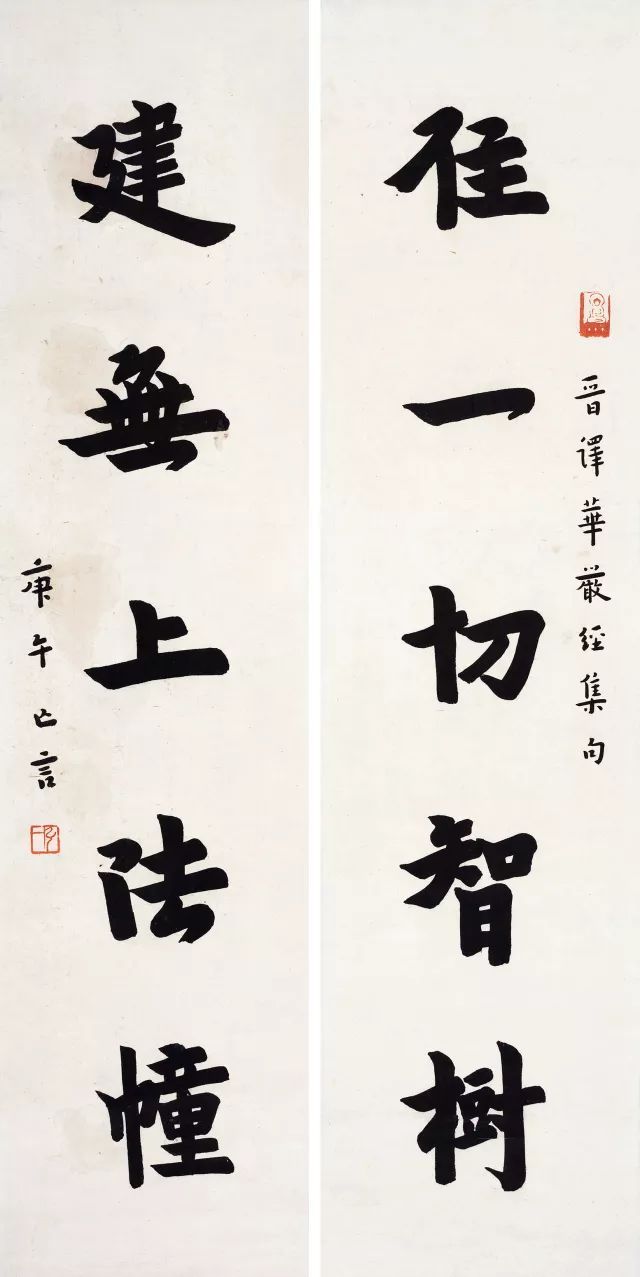 住一切智樹
晉譯華嚴經集句
建無上法幢
庚午亡言